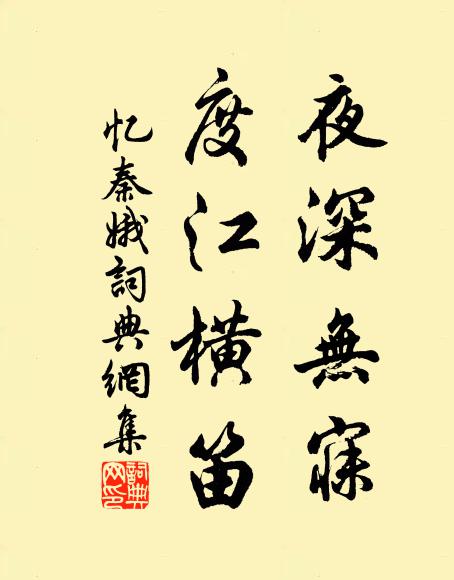 夜深無寐
度江橫笛
忆秦娥詞典網集
詞典网印